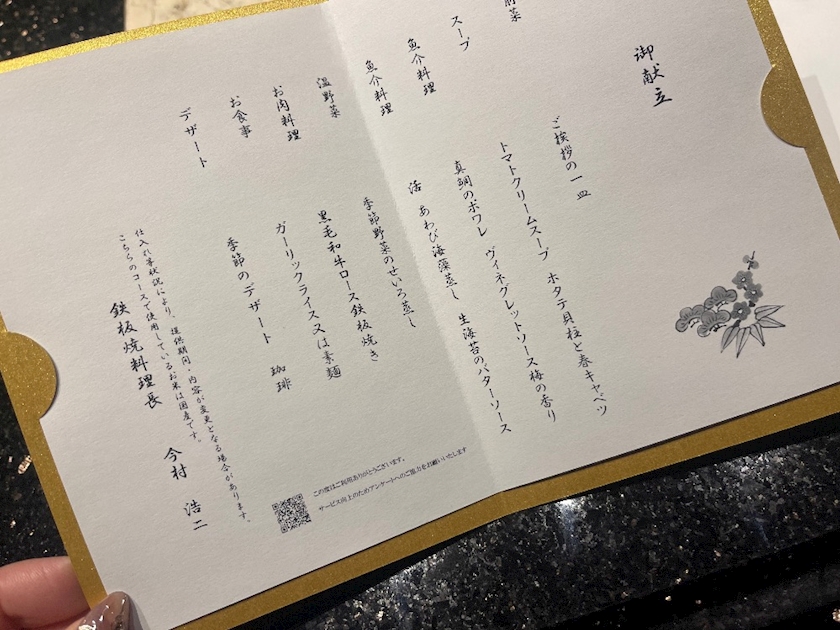 御献立
前菜
ご挨拶の一皿
スープ
トマトクリームスープ ホタテ貝柱と春キャベツ
魚介料理
真鯛のポワレ ヴィネグレットソース梅の香り
魚介料理
活 あわび海藻蒸し 生海苔のバターソース
温野菜
季節野菜のせいろ蒸し
お肉料理
黒毛和牛ロース鉄板焼き
お食事
ガーリックライス又は素麺
デザート
季節のデザート 珈琲
仕入れ等状況により、提供期間・内容が変更となる場合があります。
こちらのコースで使用しているお米は国産です。
鉄板焼料理長 今村 浩二
この度はご利用ありがとうございます。
サービス向上のためアンケートへのご協力をお願いいたします